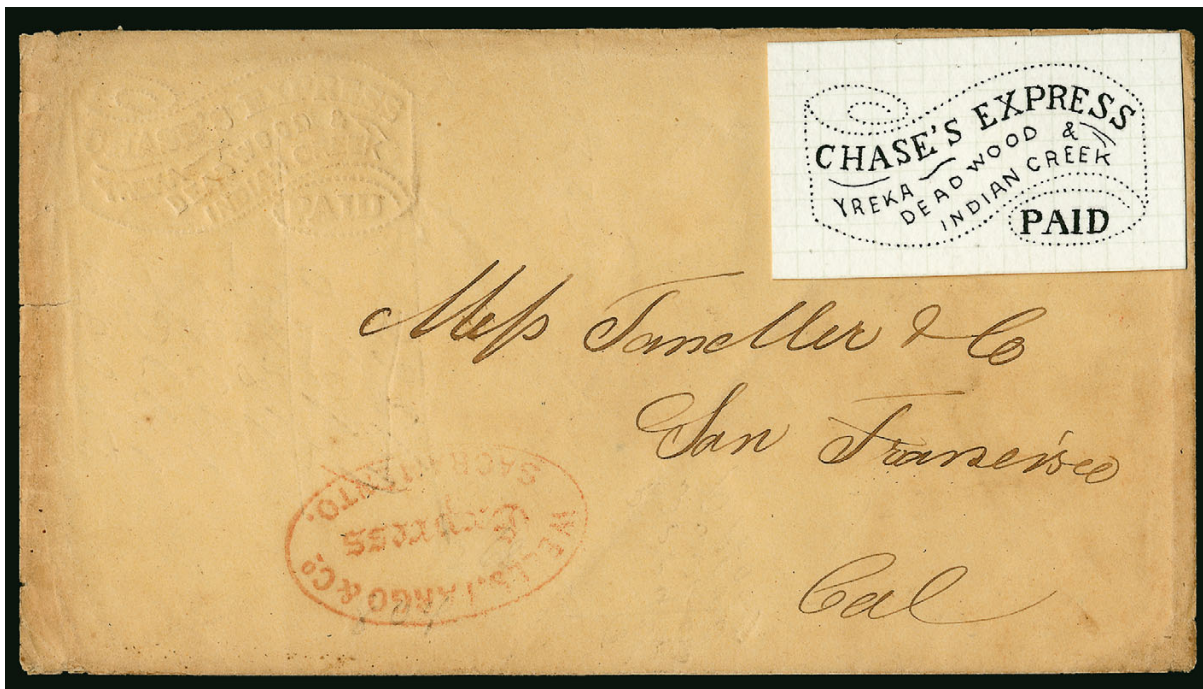 CHASE'S EXPRESS
YREKA
DEADWOOD &
INDIAN CREEK
PAID
CHASE'S EXPRESS
YREKA
DEAD WOOD &
INDIAN CREEK
PAID
Mess & Co
San Francisco
Cal
WELLS, FARGO & Co.
Express
SACRAMENTO.